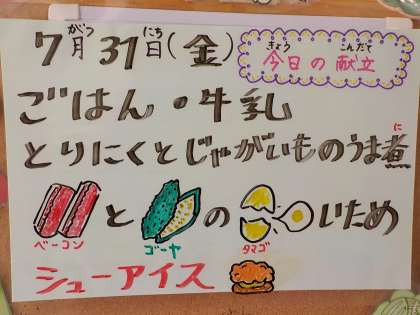 7月31日(金)
がつ
にち
今日の献立
きょう
こんだて
ごはん・牛乳
とりにくとじゃがいものうま煮
に
と の いため
ベーコン
ゴーヤ
タマゴ
シューアイス